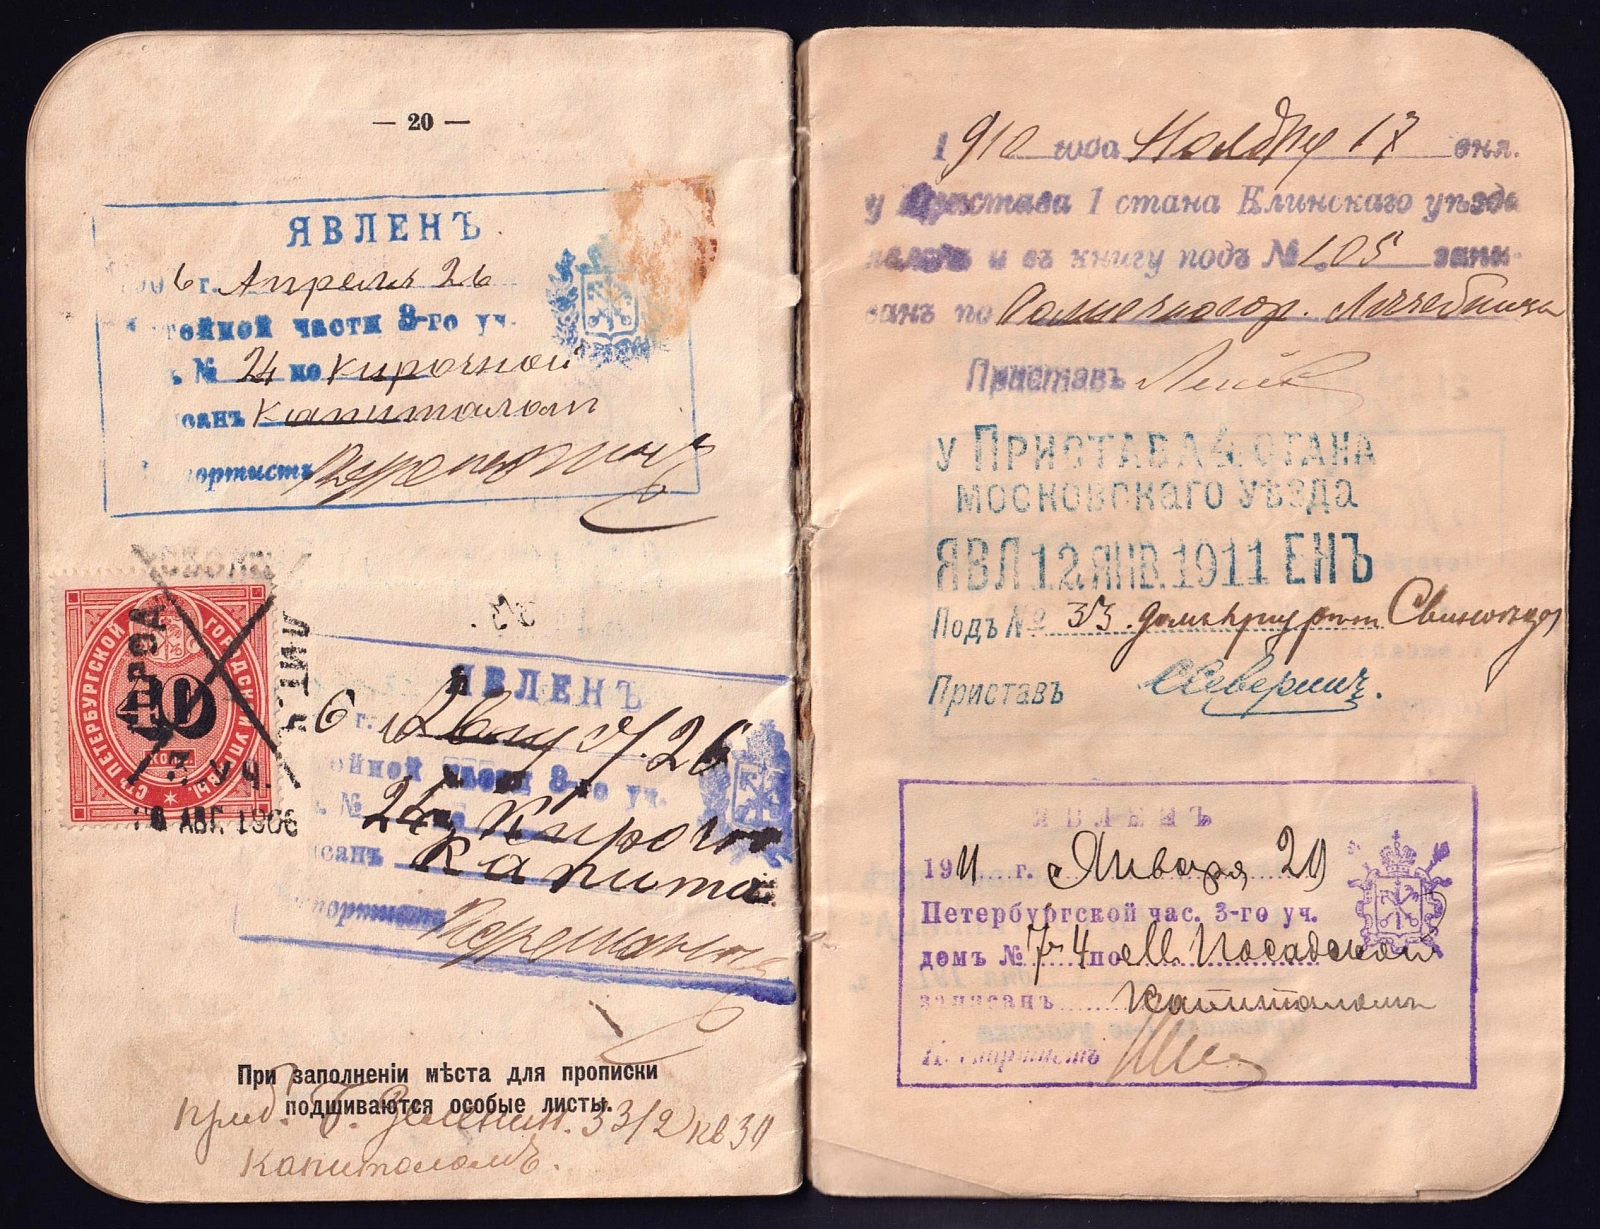 — 20 —
ЯВЛЕНЪ
6 г. Апреля 26
тейной части 3-го уч.
№ 24 по Кирочной
санъ Капиталом
портистъ
С.-ПЕТЕРБУРГСКОЙ ГОРОДСКОЙ УПР.
40
КОП
3 УЧ.
28 АВГ. 1906
ЯВЛЕНЪ
6 г. Августа 26
ейной части 3-го уч.
№ 24 Кирочн
санъ Капита
портистъ
При заполненіи мѣста для прописки
подшиваются особые листы.
33/2 кв 30
Капиталомъ.
1910 года Ноября 17 дня.
у Пристава 1 стана Клинскаго уѣзда
явленъ и въ книгу подъ № 105 запи-
санъ по Солнечногор. Лечебница
Приставъ
у Пристава 4 стана
московскаго уѣзда
ЯВЛ 12 ЯНВ. 1911 ЕНЪ
Подъ № 33.
Приставъ
ЯВЛЕНЪ
1911 г. Января 20
Петербургской час. 3-го уч.
домъ № 7-4 по М. Посадской
записанъ Капиталомъ
Паспортистъ